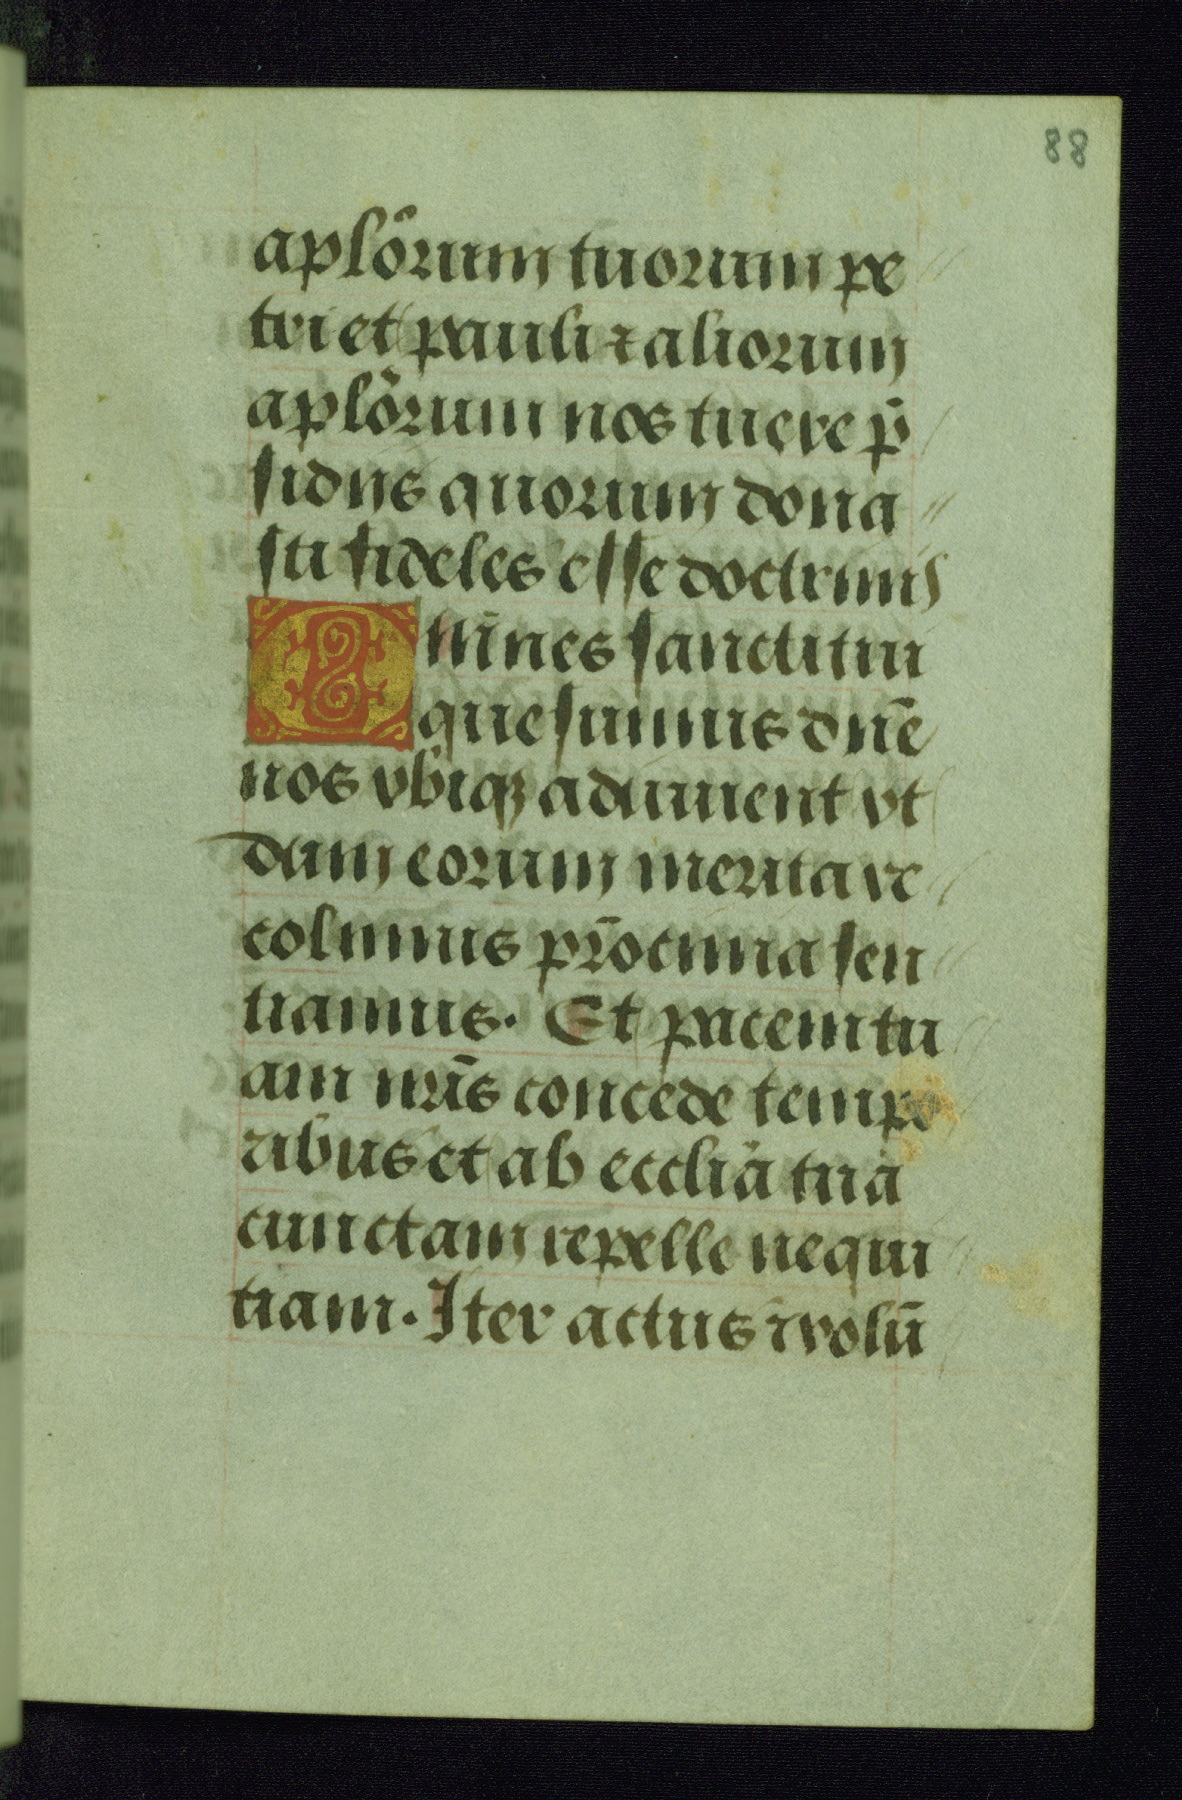 88
aplõrum tuorum pe
tri et pauli ⁊ aliorum
aplõrum nos tuere p̃
sidiis quorum dona
sti fideles esse doctrinis
Om̃nes sancti tui
quesumus dñe
nos vbiqꝫ adiuuent vt
dum eorum merita re
colimus pr̃ocinia sen
tiamus. Et pacem tu
am nr̃is concede tempo
ribus et ab ecclia tua
cunctam repelle nequi
tiam. Iter actus ⁊ volũ